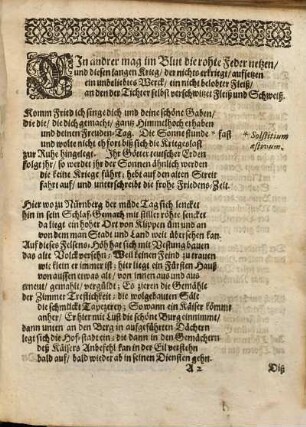 EIn andrer mag im Blut die rohte Feder netzen/
und diesen langen Krieg/ der nichts erkriegt/ auffsetzen
ein unbeliebtes Werck/ ein nicht belobter Fleiß/
an den der Tichter selbst verschwitzet Fleiß und Schweiß.
Komm Fried ich singe dich und deine schöne Gaben/
die die/ die dich gemacht/ gantz Himmelhoch erhaben
und deinen Freuden-Tag. Die Sonne stunde * fast
und wolte nicht ehfort biß sich die Kriegeslast
zur Ruhe hingelegt. Ihr Götter teutscher Erden
folgt ihr/ so werdet ihr der Sonnen ähnlich werden
die keine Kriege führt; hebt auf den alten Streit
fahrt auf/ und unterschreibt die frohe Friedens-Zeit.
* Solstitium
æstivum.
Hier wo zu Nürnberg der müde Tag sich sencket
hin in sein Schlaf-Gemach mit stiller röhte sencket
da liegt ein hoher Ort von Klippen üm und an
von dem man Stadt und Land weit übersehen kan.
Auf dieses Felsens-Höh hat sich mit Vestung bauen
das alte Volck versehn; Weil keinen Feind zu trauen
wie klein er immer ist; hier liegt ein Fürsten Hauß
von aussen etwas alt/ von innen aus und aus
erneut/ gemahlt/ vergüldt; Es zieren die Gemählde
der Zimmer Trefflichkeit; die wolgebauten Säle
die schmückt Tapezerey; So wann ein Käiser kömmt
anher/ Er hier mit Lust die schöne Burg einnimmt/
dann unten an den Berg in aufgeführten Dächern
legt sich die Hof-stadt ein; die dann in den Gemächern
deß Käisers Anbefehl kan in der Eil verstehn
bald auf/ bald wieder ab in seinen Diensten gehn.
A 2
Diß